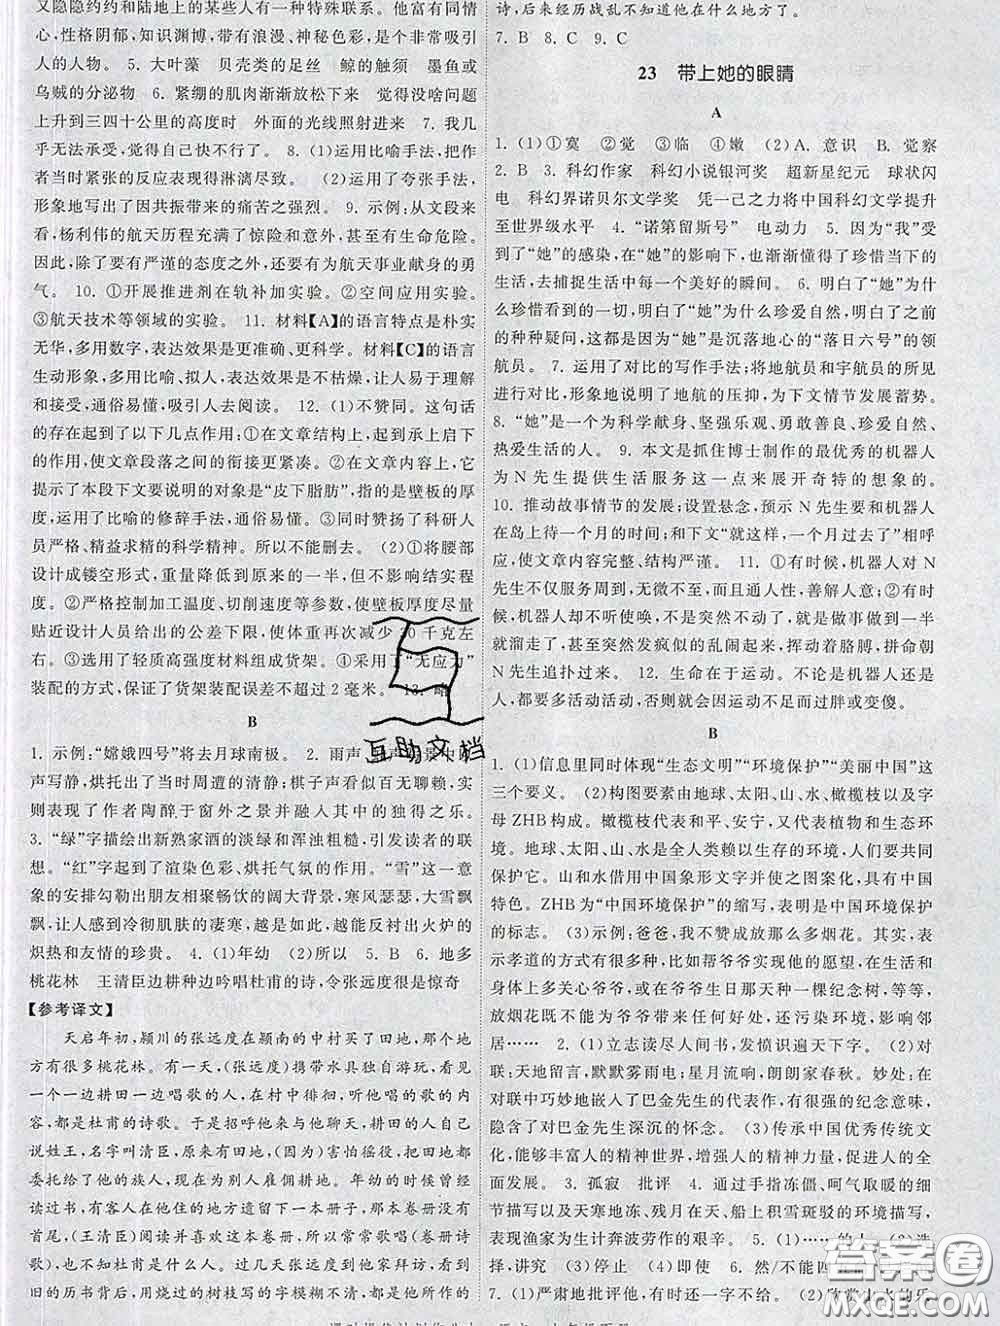 又隐隐约约和陆地上的某些人有一种特殊联系。他富有同情
心,性格阴郁,知识渊博,带有浪漫、神秘色彩,是个非常吸引
人的人物。 5. 大叶藻 贝壳类的足丝 鲸的触须 墨鱼或
乌贼的分泌物 6. 紧绷的肌肉渐渐放松下来 觉得没啥问题
上升到三四十公里的高度时 外面的光线照射进来 7. 我几
乎无法承受,觉得自己快不行了。 8. (1)运用比喻手法,把作
者当时紧张的反应表现得淋漓尽致。 (2)运用了夸张手法,
形象地写出了因共振带来的痛苦之强烈。 9. 示例:从文段来
看,杨利伟的航天历程充满了惊险和意外,甚至有生命危险。
因此,除了要有严谨的态度之外,还要有为航天事业献身的勇
气。 10. ①开展推进剂在轨补加实验。②空间应用实验。
③航天技术等领域的实验。 11. 材料【A】的语言特点是朴实
无华,多用数字,表达效果是更准确、更科学。材料【C】的语言
生动形象,多用比喻、拟人,表达效果是不枯燥,让人易于理解
和接受,通俗易懂,吸引人去阅读。 12. (1)不赞同。这句话
的存在起到了以下几点作用:①在文章结构上,起到承上启下
的作用,使文章段落之间的衔接更紧凑。②在文章内容上,它
提示了本段下文要说明的对象是“皮下脂肪”,指的是壁板的厚
度,运用了比喻的修辞手法,通俗易懂。③同时赞扬了科研人
员严格、精益求精的科学精神。所以不能删去。 (2)①将腰部
设计成镂空形式,重量降低到原来的一半,但不影响结实程
度。②严格控制加工温度、切削速度等参数,使壁板厚度尽量
贴近设计人员给出的公差下限,使体重再次减少30千克左
右。③选用了轻质高强度材料组成货架。④采用了“无应力”
装配的方式,保证了货架装配误差不超过2毫米。 13. 略
B
1. 示例:“嫦娥四号”将去月球南极。 2. 雨声
声写静,烘托了当时周遭的清静;棋子声看似百无聊赖,其
实则表现了作者陶醉于窗外之景并融入其中的独得之乐。
3. “绿”字描绘出新熟家酒的淡绿和浑浊粗糙,引发读者的联
想。“红”字起到了渲染色彩、烘托气氛的作用。“雪”这一意
象的安排勾勒出朋友相聚畅饮的阔大背景,寒风瑟瑟,大雪飘
飘,让人感到冷彻肌肤的凄寒,越是如此,越能反衬出火炉的
炽热和友情的珍贵。 4. (1)年幼 (2)所以 5. B 6. 地多
桃花林 王清臣边耕种边吟唱杜甫的诗,令张远度很是惊奇
【参考译文】
天启年初,颍川的张远度在颍南的中村买了田地,那个地
方有很多桃花林。有一天,(张远度)携带水具独自游玩,看
见一个一边耕田一边唱歌的人,在村中徘徊,听他唱的歌的内
容,都是杜甫的诗。于是招呼他来与他聊天,耕田的人自己
说姓王,名字叫清臣,以前有田地,(因为)害怕徭役,田地都
委托给了他的族人,现在为别人雇佣耕地。年幼的时候曾经
读过书,有客人在他住的地方遗留下一本册子,那本卷册没有
首尾,(王清臣)阅读并喜欢这本卷册,所以常常歌唱(卷册诗
歌),也不知杜甫是什么人。过了几天张远度到他家拜访,看到
旧的历书背后,用烧过的树枝写的字模糊不清,都是他所作的
诗,后来经历战乱不知道他在什么地方了。
7. B 8. C 9. C
23 带上她的眼睛
A
1. (1)①寞 ②觉 ③临 ④嫩 (2)A. 意识 B. 觉察
2. B 3. 科幻作家 科幻小说银河奖 超新星纪元 球状闪
电 科幻界诺贝尔文学奖 凭一己之力将中国科幻文学提升
至世界级水平 4. “诺第留斯号” 电动力 5. 因为“我”受
到了“她”的感染,在“她”的影响下,也渐渐懂得了珍惜当下的
生活,去捕捉生活中每一个美好的瞬间。 6. 明白了“她”为什
么珍惜看到的一切,明白了“她”为什么珍爱自然,明白了前面
的种种疑问,这都因为“她”是沉落地心的“落日六号”的领
航员。 7. 运用了对比的写作手法;将地航员和宇航员的所见
进行对比,形象地说明了地航的压抑,为下文情节发展蓄势。
8. “她”是一个为科学献身、坚强乐观、勇敢善良、珍爱自然、
热爱生活的人。 9. 本文是抓住博士制作的最优秀的机器人
为N先生提供生活服务这一点来展开奇特的想象的。
10. 推动故事情节的发展;设置悬念,预示N先生要和机器人
在岛上待一个月的时间;和下文“就这样,一个月过去了”相呼
应,使文章内容完整、结构严谨。 11. ①有时候,机器人对N
先生不仅服务周到,无微不至,而且通人性,善解人意;②有时
候,机器人却不听使唤,不是突然不动了,就是做到一半
就溜走了,甚至突然发疯似的乱闹起来,挥动着胳膊,拼命朝
N先生追扑过来。 12. 生命在于运动。不论是机器人还是
人,都要多活动活动,否则就会因运动不足而发胖或变傻。
B
1. (1)信息里同时体现“生态文明”“环境保护”“美丽中国”这
三个要义。 (2)构图要素由地球、太阳、山、水、橄榄枝以及字
母ZHB构成。橄榄枝代表和平、安宁,又代表植物和生态环
境。地球、太阳、山、水是全人类赖以生存的环境,人们要共同
保护它。山和水借用中国象形文字并使之图案化,具有中国
特色。ZHB为“中国环境保护”的缩写,表明是中国环境保护
的标志。 (3)示例:爸爸,我不赞成放那么多烟花。其实,表
示孝道的方式有很多种,比如帮爷爷实现他的愿望,在生活和
身体上多关心爷爷,以爷爷的名义在野外种一棵纪念树,等等,
放烟花并不能为爷爷带来任何好处,还污染环境,影响邻
居…… 2. (1)立志读尽人间书,发愤识遍天下字。 (2)对
联:天地留言,默默雾雨电;星月流响,朗朗家春秋。妙处:在
对联中巧妙地嵌入了巴金先生的代表作,有很强的纪念意味,
隐含了对巴金先生深沉的怀念。 (3)传承中国优秀传统文
化,能够丰富人的精神世界,增强人的精神力量,促进人的全
面发展。 3. 孤寂 批评 4. 通过手指冻僵、呵气取暖的细
节描写以及天寒地冻、残月在天、船上积雪斑驳的环境描写,
表现渔家为生计奔波劳作的艰辛。 5. (1)……的人 (2)选
择,讲究 (3)停止 (4)即使 6. 然/不能四
7. (1)严肃地批评他,一时传
互助文档
答案圈